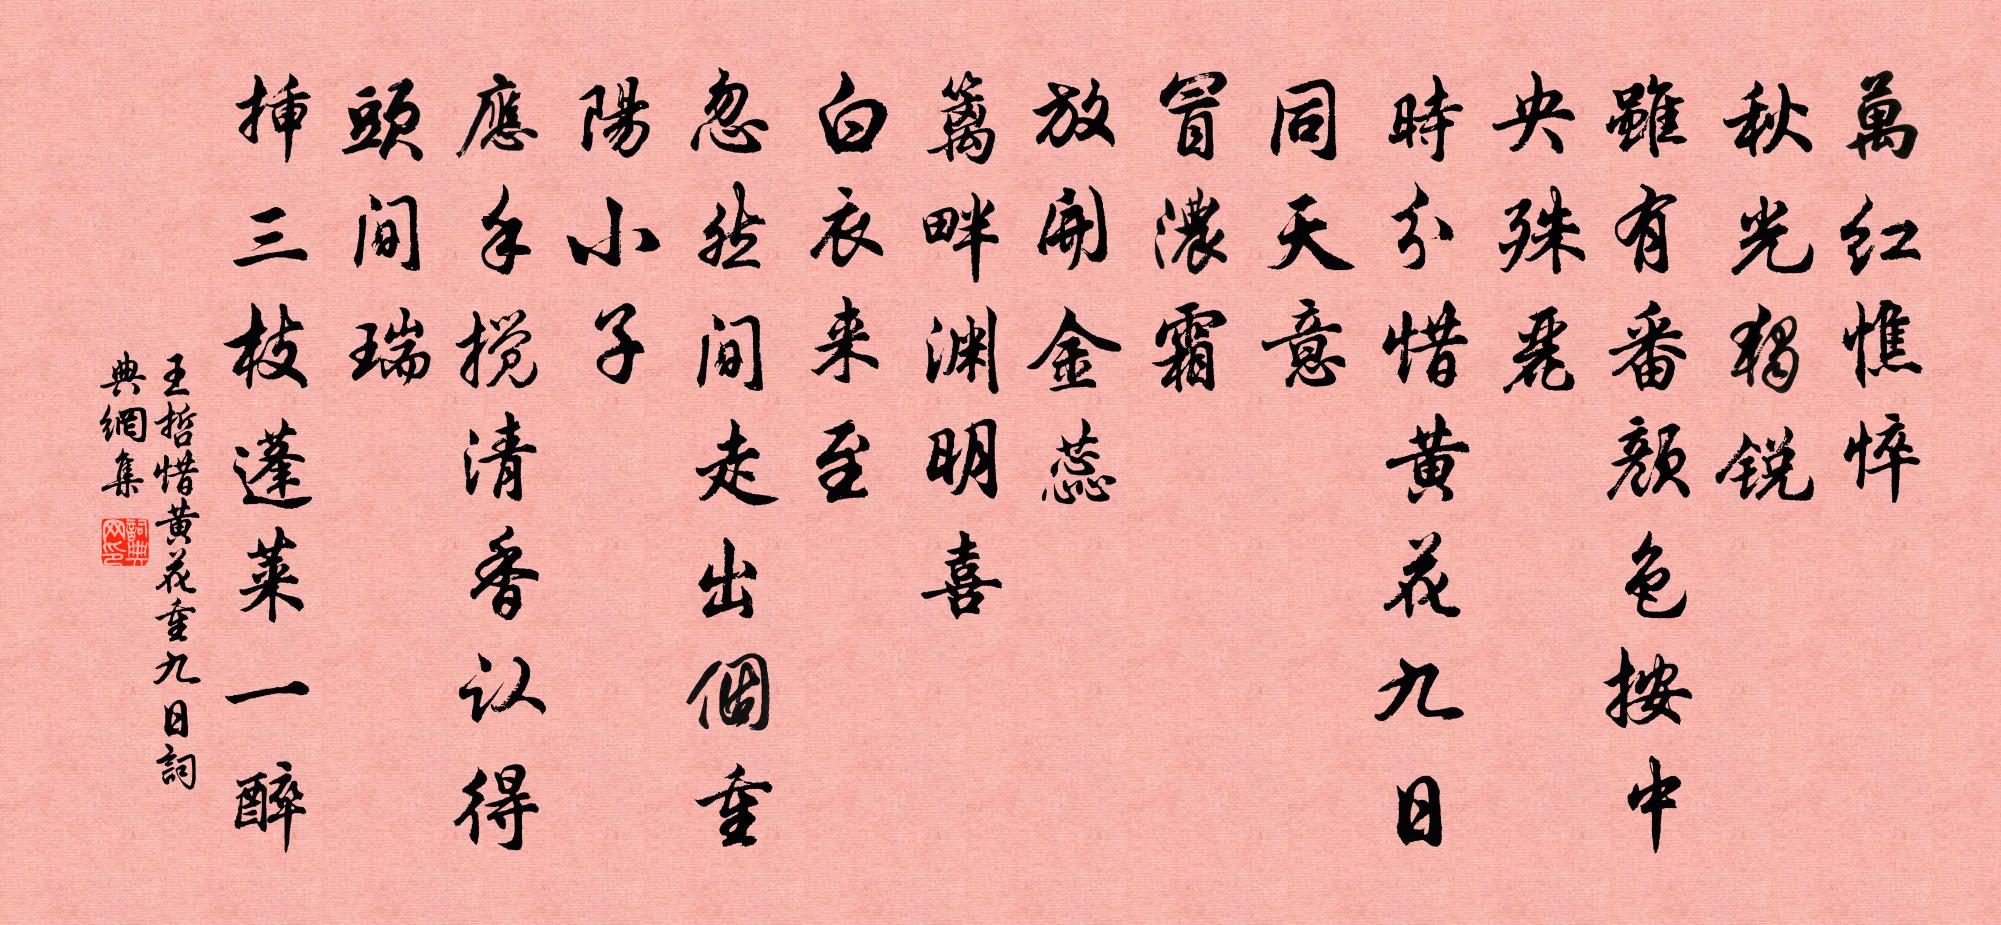 萬红憔悴
秋光獨銳
雖有番顏色按中
央殊麗
時分惜黄花九日
同天意
冒濃霜
放開金蕊
籬畔渊明喜
白衣来至
忽然间走出個重
陽小子
應手攬清香认得
頭间瑞
挿三枝蓬莱一醉
王哲惜黄花重九日詞
典網集
詞典网印